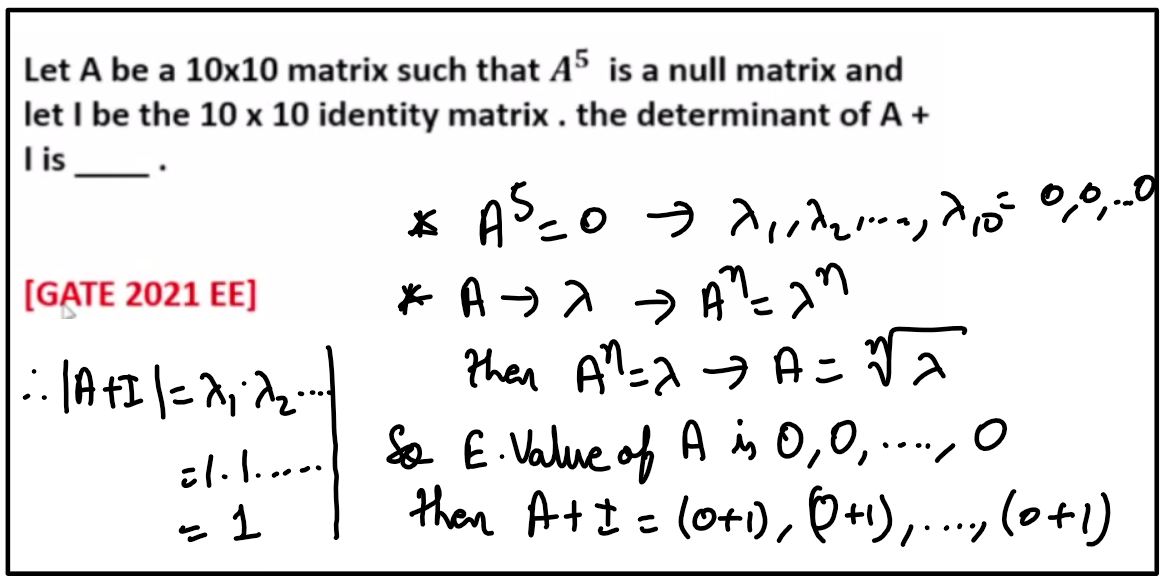 Let A be a 10x10 matrix such that A⁵ is a null matrix and
let I be the 10 x 10 identity matrix . the determinant of A +
I is ____ .
* A⁵ = 0 → λ₁, λ₂, ...., λ₁₀ = 0, 0, ...0
[GATE 2021 EE]
* A → λ → Aⁿ = λⁿ
then Aⁿ = λ → A = ⁿ√λ
So E.Value of A is 0, 0, ....., 0
then A + I = (0+1), (0+1), ...., (0+1)
∴ |A+I| = λ₁·λ₂....
= 1·1.....
= 1